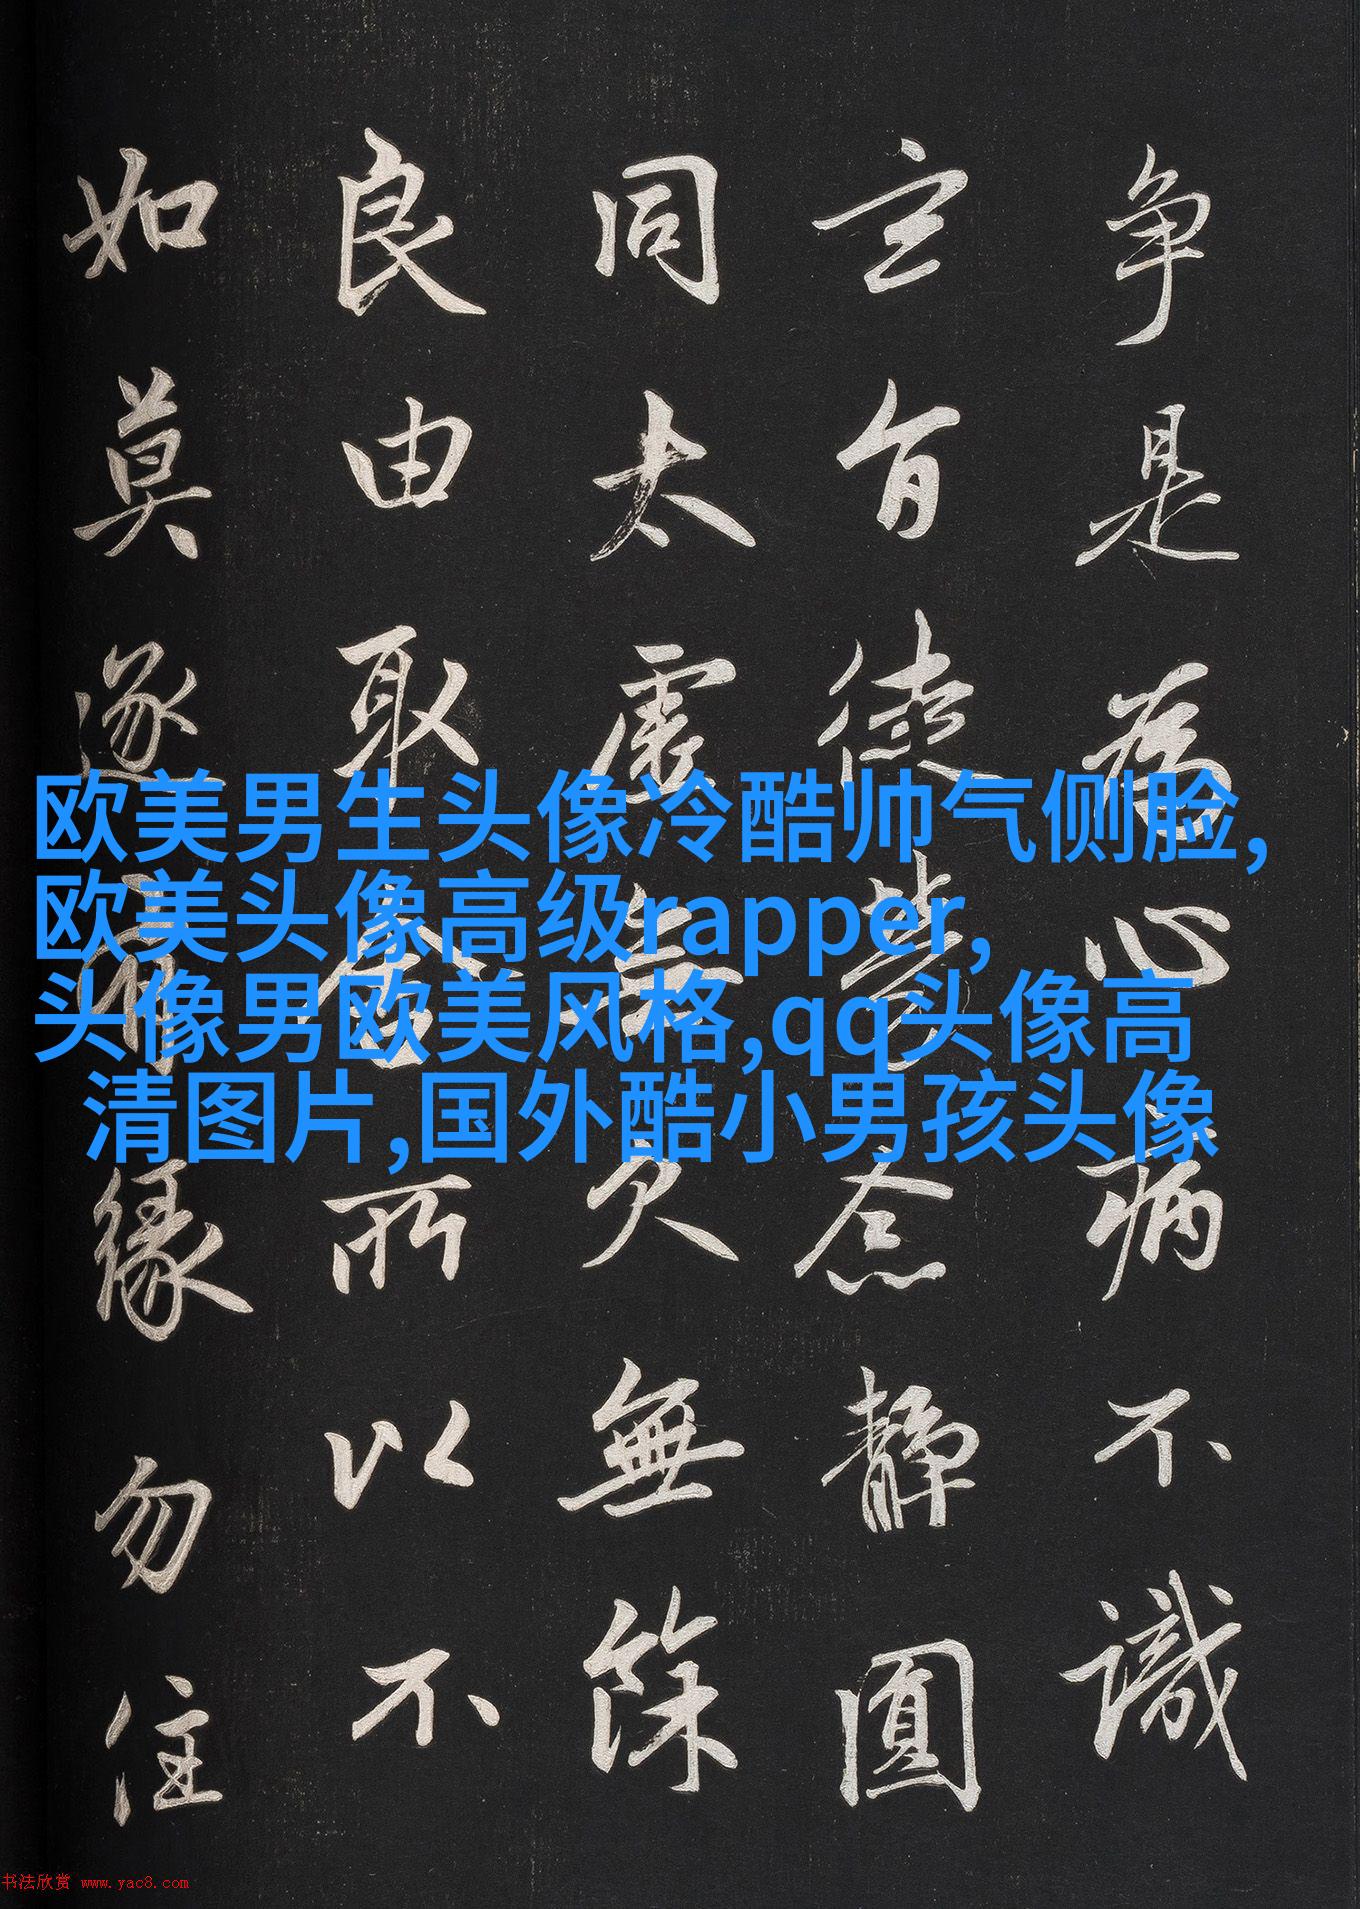 争是為心病不識
玄旨徒勞念靜圓
同太虛無欠無餘
良由取舍所以不
如莫逐有緣勿住
欧美男生头像冷酷帅气侧脸,
欧美头像高级rapper,
头像男欧美风格,qq头像高
清图片,国外酷小男孩头像
书法欣赏 www.yac8.com